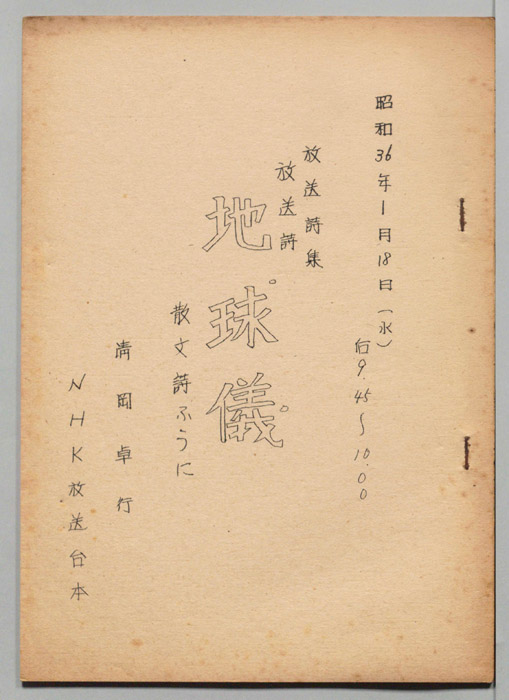 昭和36年1月18日(水)
后9.45〜10.00
放送詩集
放送詩
地球儀
散文詩ふうに
清岡卓行
NHK放送台本